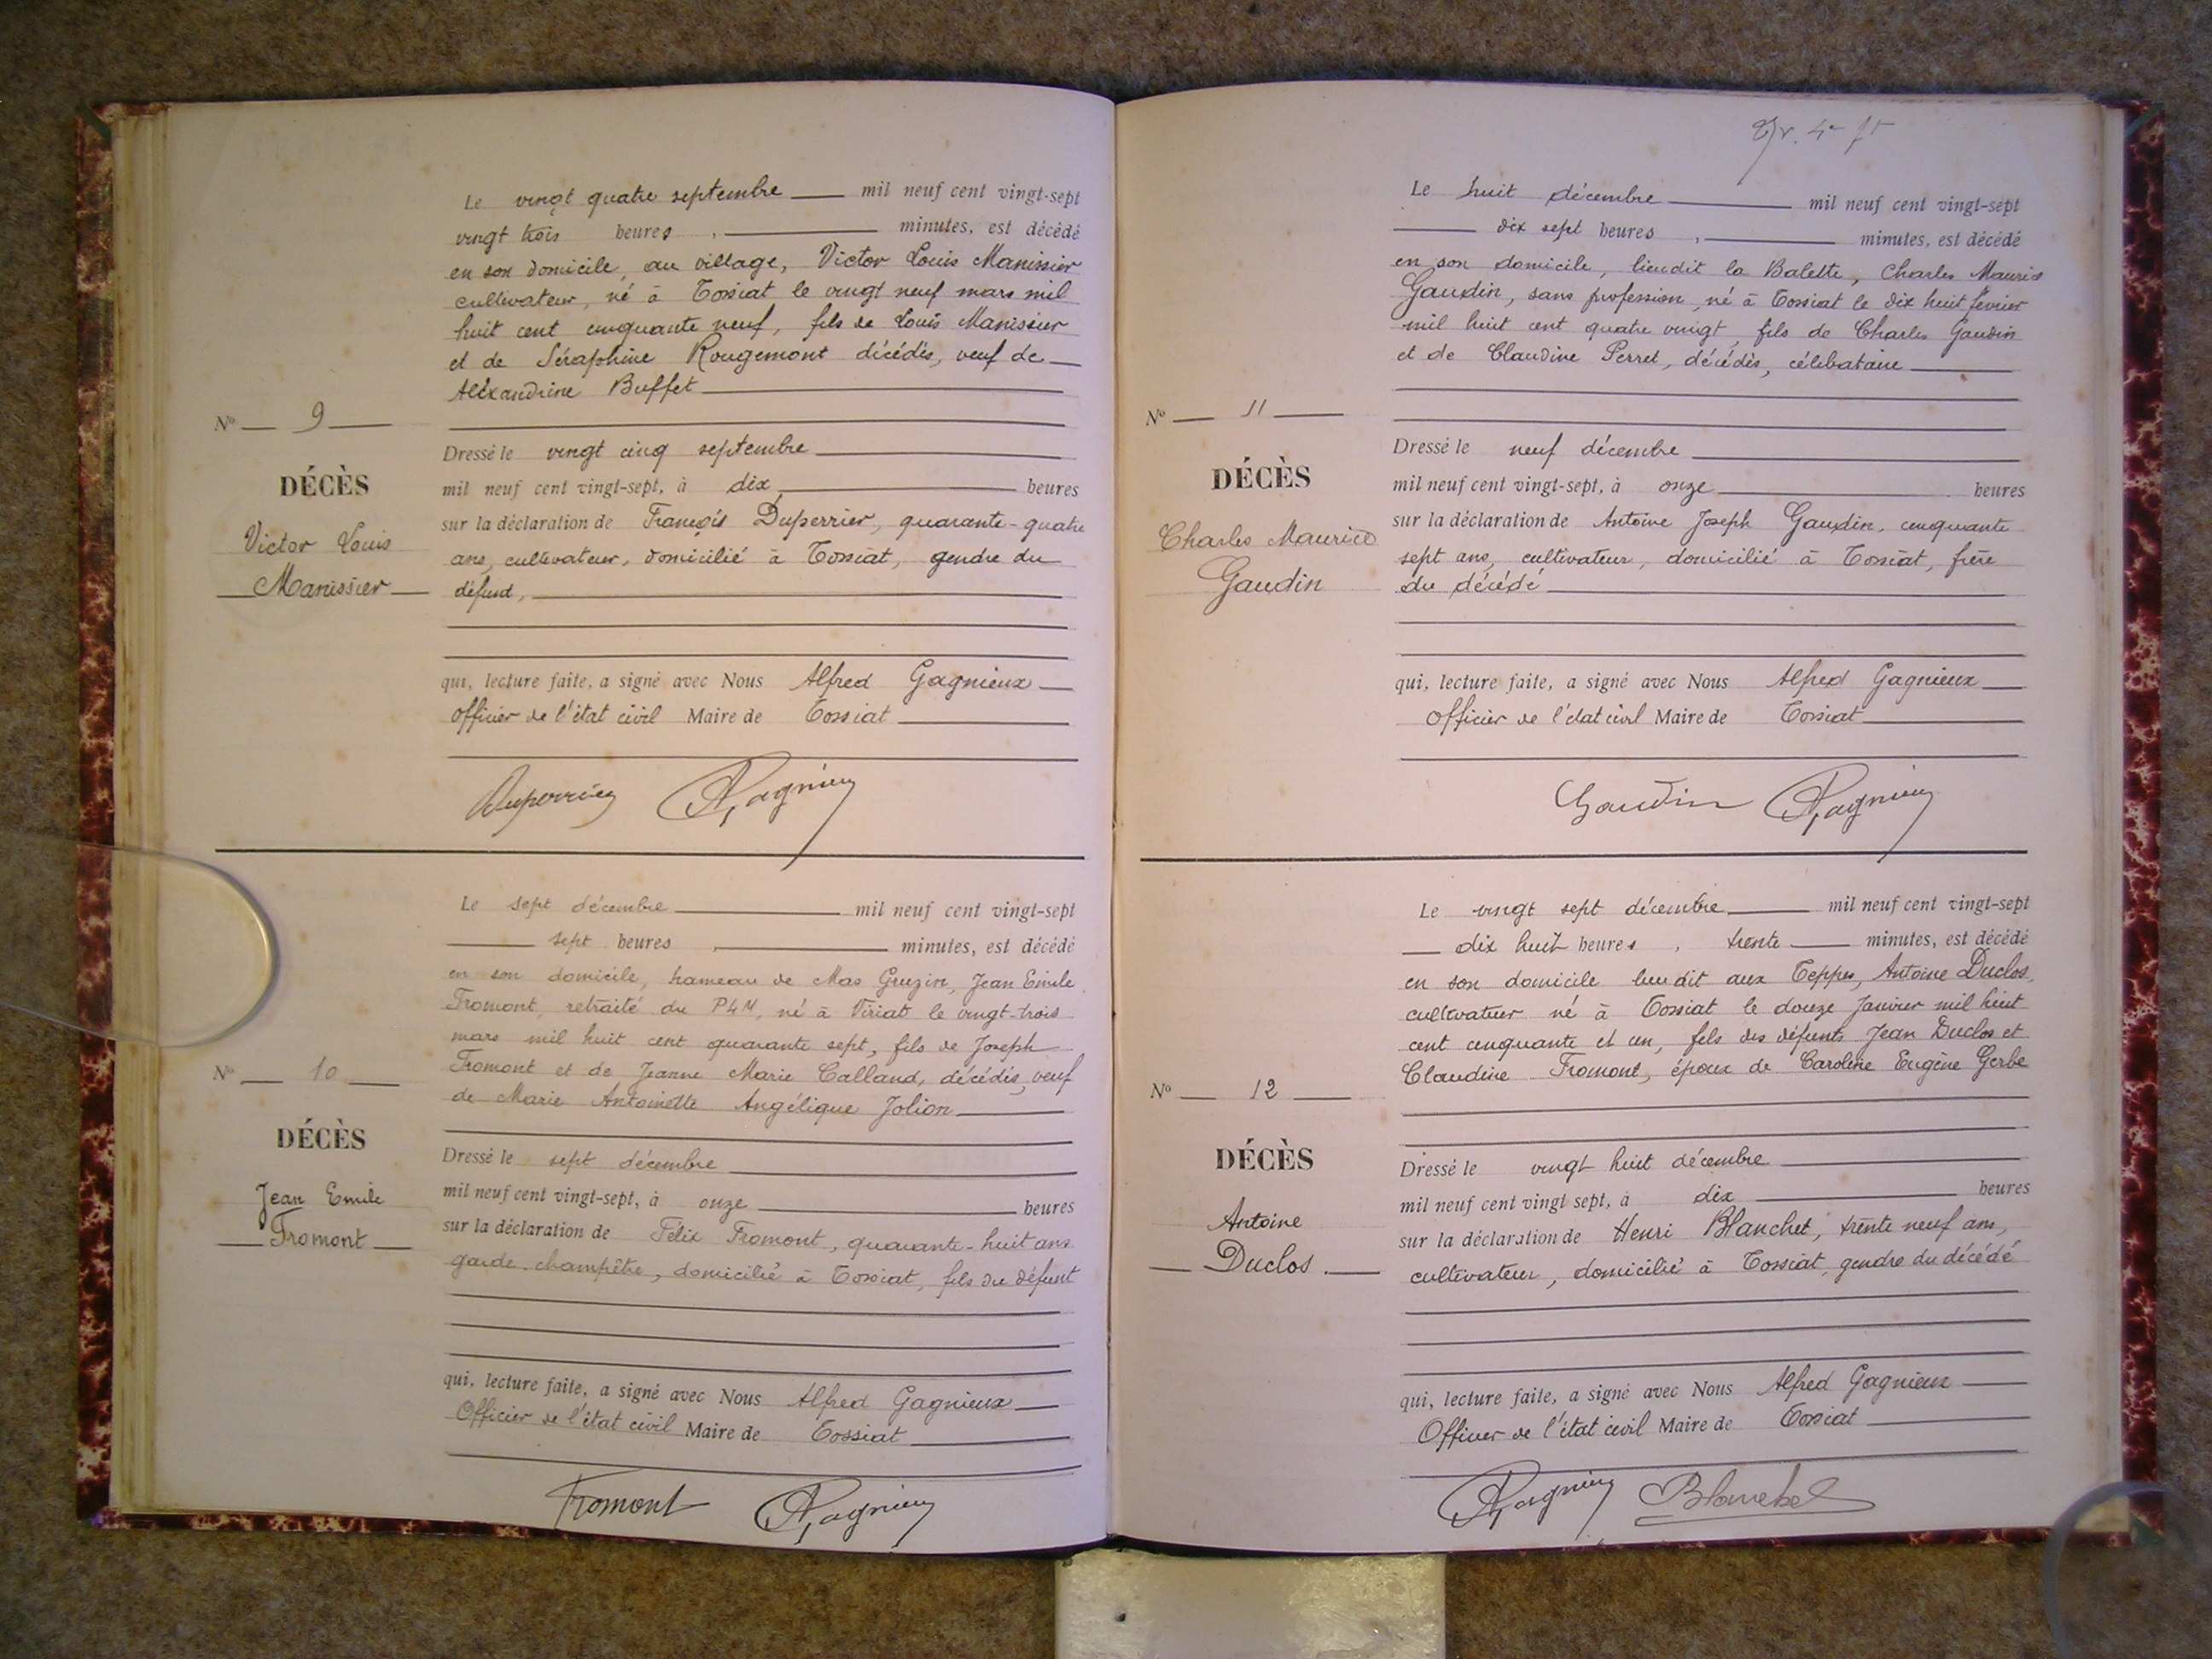 Le vingt quatre septembre mil neuf cent vingt-sept
vingt trois heures, minutes, est décédé
en son domicile, au village, Victor Louis Manissier
cultivateur, né à Tossiat le vingt neuf mars mil
huit cent cinquante neuf, fils de Louis Manissier
et de Séraphine Rougemont décédés, veuf de
Aléxandrine Buffet
N° 9
DÉCÈS
Victor Louis
Manissier
Dressé le vingt cinq septembre
mil neuf cent vingt-sept, à dix heures
sur la déclaration de François Duperrier, quarante-quatre
ans, cultivateur, domicilié à Tossiat, gendre du
défunt,
qui, lecture faite, a signé avec Nous Alfred Gagnieux
Officier de l'état civil Maire de Tossiat
Duperrier Gagnieux
Le sept décembre mil neuf cent vingt-sept
sept heures, minutes, est décédé
en son domicile, hameau de Mas Gruzin, Jean Emile
Fromont, retraité du PLM, né à Viriat le vingt-trois
mars mil huit cent quarante sept, fils de Joseph
Fromont et de Jeanne Marie Calland, décédés, veuf
de Marie Antoinette Angélique Jolion
N° 10
DÉCÈS
Jean Emile
Fromont
Dressé le sept décembre
mil neuf cent vingt-sept, à onze heures
sur la déclaration de Félix Fromont, quarante-huit ans
garde-champêtre, domicilié à Tossiat, fils du défunt
qui, lecture faite, a signé avec Nous Alfred Gagnieux
Officier de l'état civil Maire de Tossiat
Fromont Gagnieux
Le huit décembre mil neuf cent vingt-sept
dix sept heures, minutes, est décédé
en son domicile, lieudit la Balette, Charles Maurice
Gaudin, sans profession, né à Tossiat le dix huit février
mil huit cent quatre vingt, fils de Charles Gaudin
et de Claudine Perret, décédés, célibataire
N° 11
DÉCÈS
Charles Maurice
Gaudin
Dressé le neuf décembre
mil neuf cent vingt-sept, à onze heures
sur la déclaration de Antoine Joseph Gaudin, cinquante
sept ans, cultivateur, domicilié à Tossiat, frère
du décédé
qui, lecture faite, a signé avec Nous Alfred Gagnieux
Officier de l'état civil Maire de Tossiat
Gaudin Gagnieux
Le vingt sept décembre mil neuf cent vingt-sept
dix huit heures, trente minutes, est décédé
en son domicile lieu dit aux Teppes, Antoine Duclos,
cultivateur né à Tossiat le douze Janvier mil huit
cent cinquante et un, fils des défunts Jean Duclos et
Claudine Fromont, époux de Caroline Eugène Gerbe
N° 12
DÉCÈS
Antoine
Duclos
Dressé le vingt huit décembre
mil neuf cent vingt sept, à dix heures
sur la déclaration de Henri Blanchet, trente neuf ans,
cultivateur, domicilié à Tossiat, gendre du décédé
qui, lecture faite, a signé avec Nous Alfred Gagnieux
Officier de l'état civil Maire de Tossiat
Gagnieux Blanchet